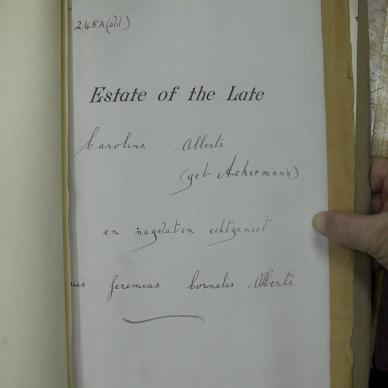 248A (old)
Estate of the Late
Carolina Alberts
(geb Ackermann)
en nagelaten echtgenoot
Jeremias Cornelis Alberts.